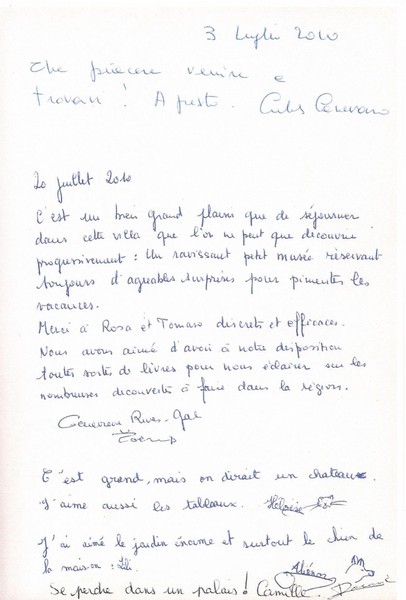 3 Luglio 2010
Che piacere venire a
trovarvi! A presto.
20 juillet 2010
C'est un bien grand plaisir que de séjourner
dans cette villa que l'on ne peut que découvrir
progressivement : Un ravissant petit musée réservant
toujours d'agréables surprises pour pimenter les
vacances.
Merci à Rosa et Tomaso discrets et efficaces.
Nous avons aimé d'avoir à notre disposition
toutes sortes de livres pour nous éclairer sur les
nombreuses découvertes à faire dans la région.
Geneviève
C'est grand, mais on dirait un chateau.
J'aime aussi les tableaux. Héloïse
J'ai aimé le jardin énorme et surtout le chien de
la maison : Lili. Aliénor
Se perdre dans un palais! Camille